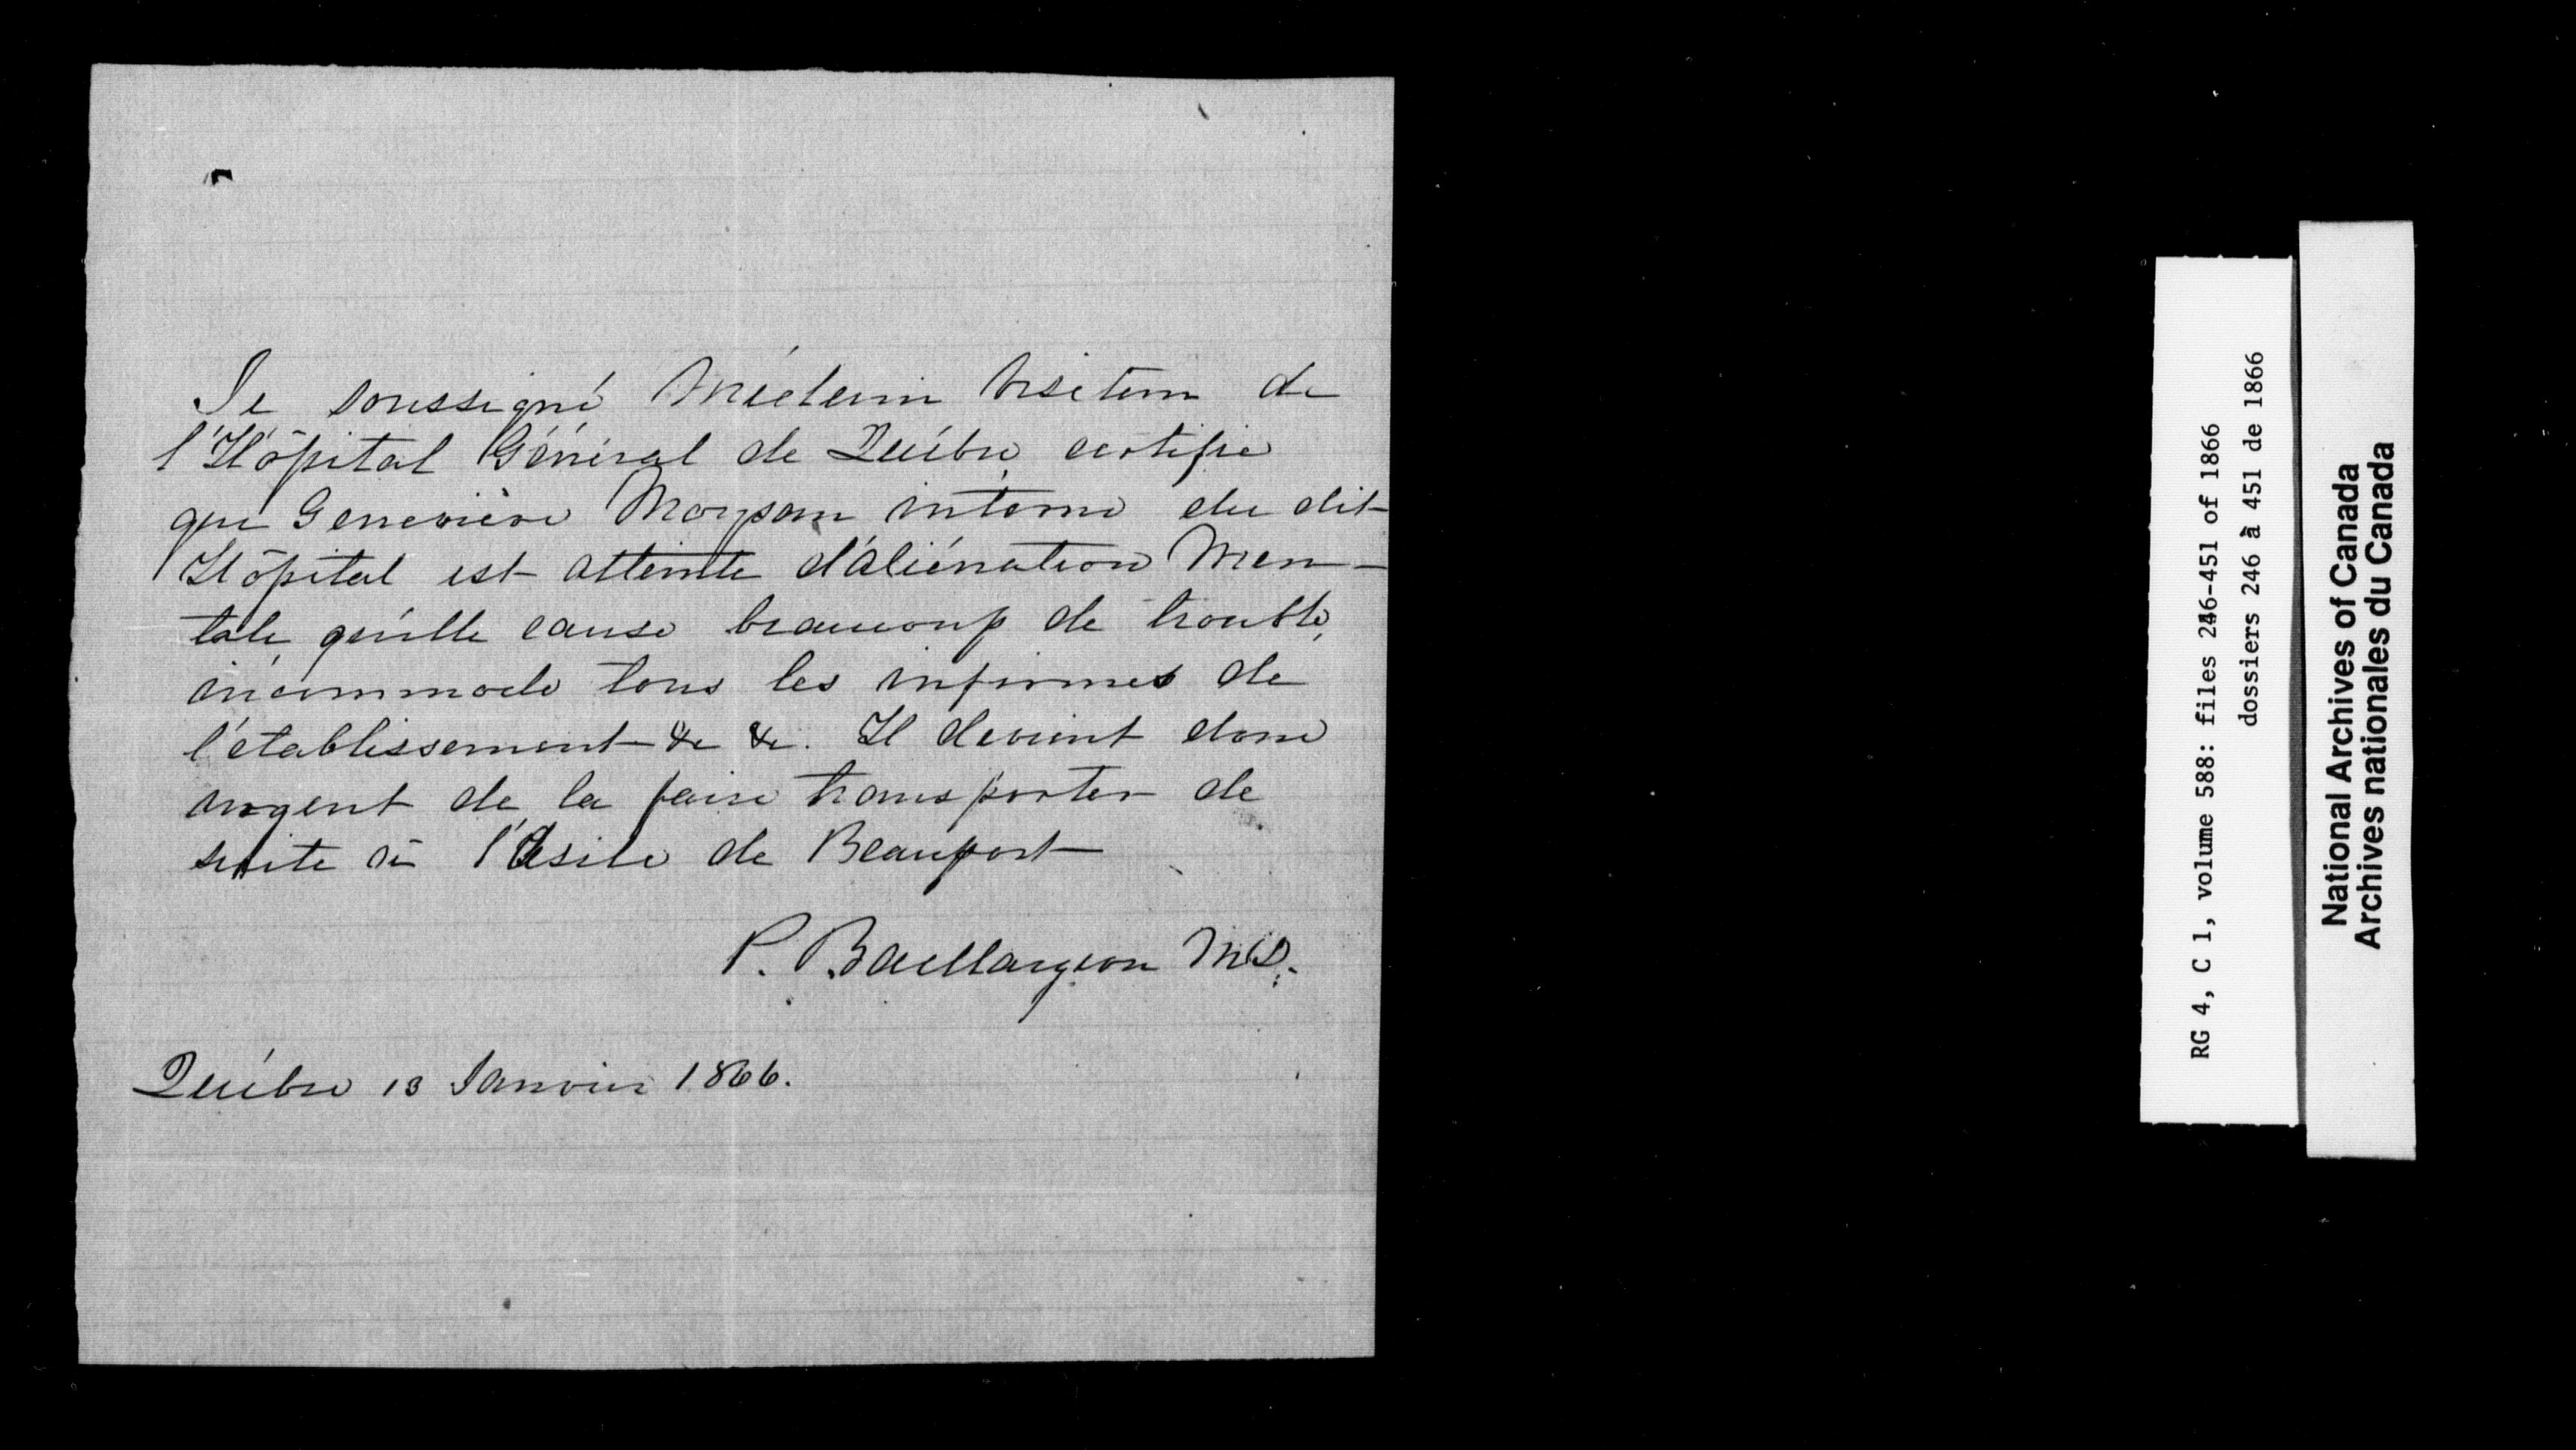 Je soussigné Médecin Visiteur de
l'Hôpital Général de Québec certifie
que Geneviève interne du dit
Hôpital est atteinte d'aliénation Men-
tale, qu'elle cause beaucoup de trouble,
incommode tous les infirmes de
l'établissement &c &c. Il devient donc
urgent de la faire transporter de
suite à l'Asile de Beauport
P. Baillargeon MD.
Québec 13 Janvier 1866.
RG 4, C 1, volume 588: files 246-451 of 1866
dossiers 246 à 451 de 1866
National Archives of Canada
Archives nationales du Canada